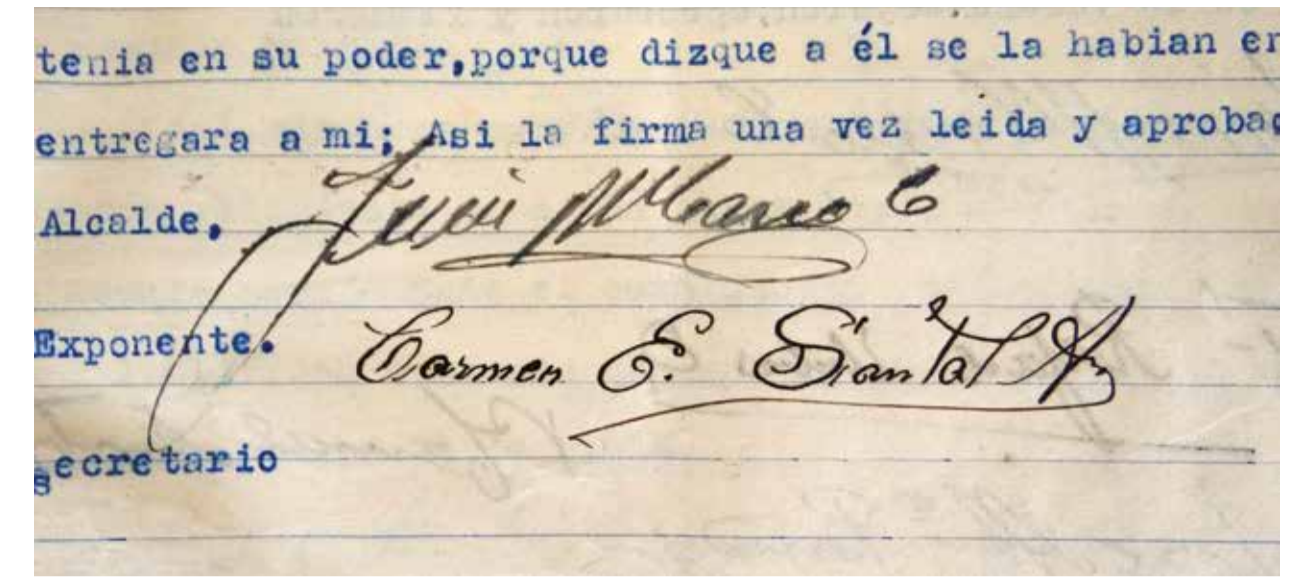 tenia en su poder,porque dizque a él se la habian en
entregara a mi; Asi la firma una vez leida y aprobad
Alcalde,
Exponente. Carmen E.
secretario